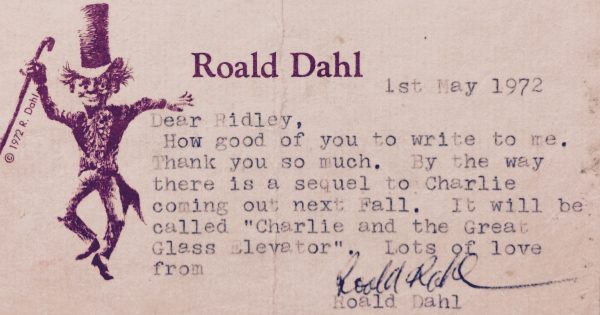 © 1972 R. Dahl
Roald Dahl
1st May 1972
Dear Ridley,
How good of you to write to me.
Thank you so much. By the way
there is a sequel to Charlie
coming out next Fall. It will be
called "Charlie and the Great
Glass Elevator".. Lots of love
from
Roald Dahl
Roald Dahl